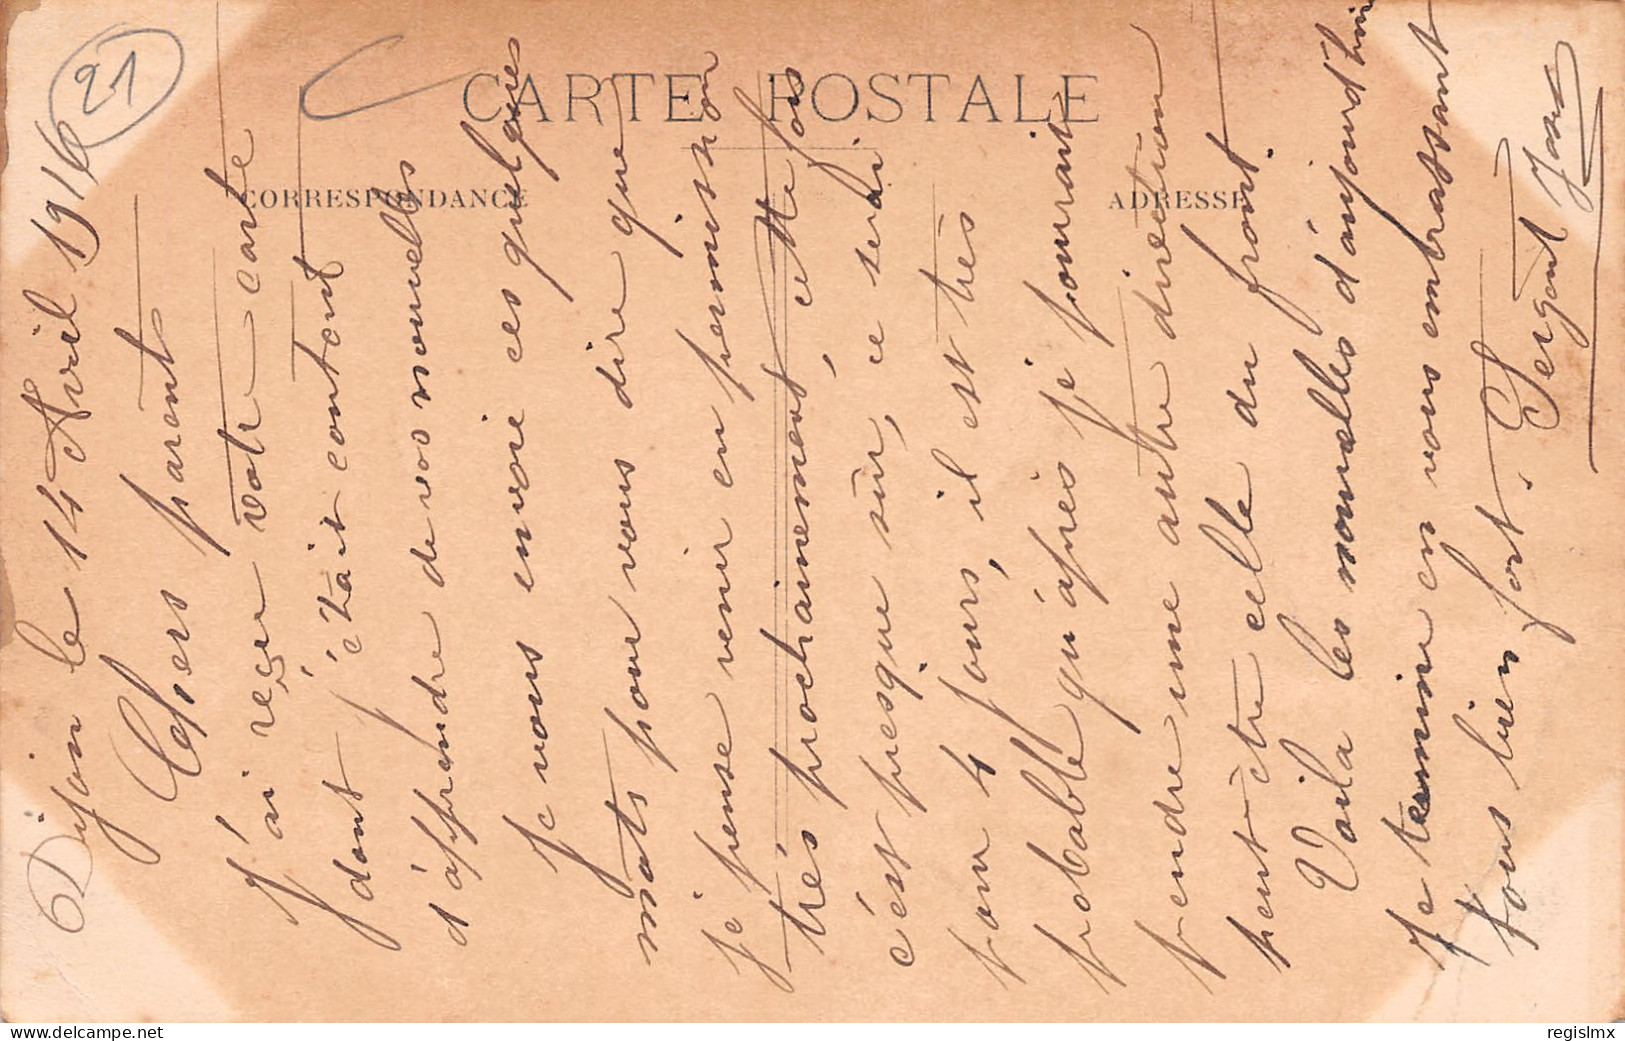 21
CARTE POSTALE
CORRESPONDANCE
ADRESSE
Dijon le 14 Avril 1916
Chers parents
J'ai reçu votre carte
dont j'était content
d'apprendre de vos nouvelles
Je vous envoie ces quelques
mots pour vous dire que
je pense venir en permission
très prochainement, cette fois
c'est presque sûr, ce serai
pour 4 jours, il est très
probable qu'après je pourrait
pendre une autre direction
peut-être celle du front.
Voila les nouvelles d'anjourd'hui
Je termine en vous embrassant
tous bien fort. Sergent
delcampe.net
regislmx